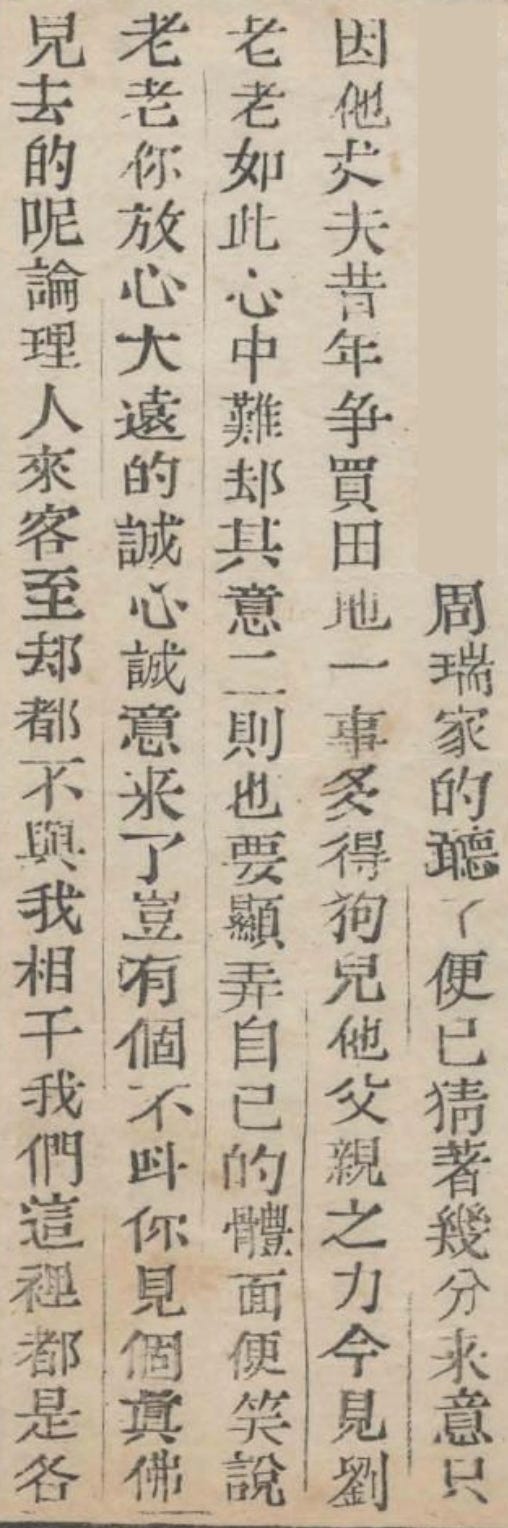 周瑞家的聽了便已猜著幾分来意只
因他丈夫昔年争買田地一事多得狗兒他父親之力今見劉
老老如此心中難却其意二則也要顯弄自己的體面便笑說
老老你放心大遠的誠心誠意来了豈有個不叫你見個真佛
兒去的呢論理人來客至却都不與我相干我們這裡都是各